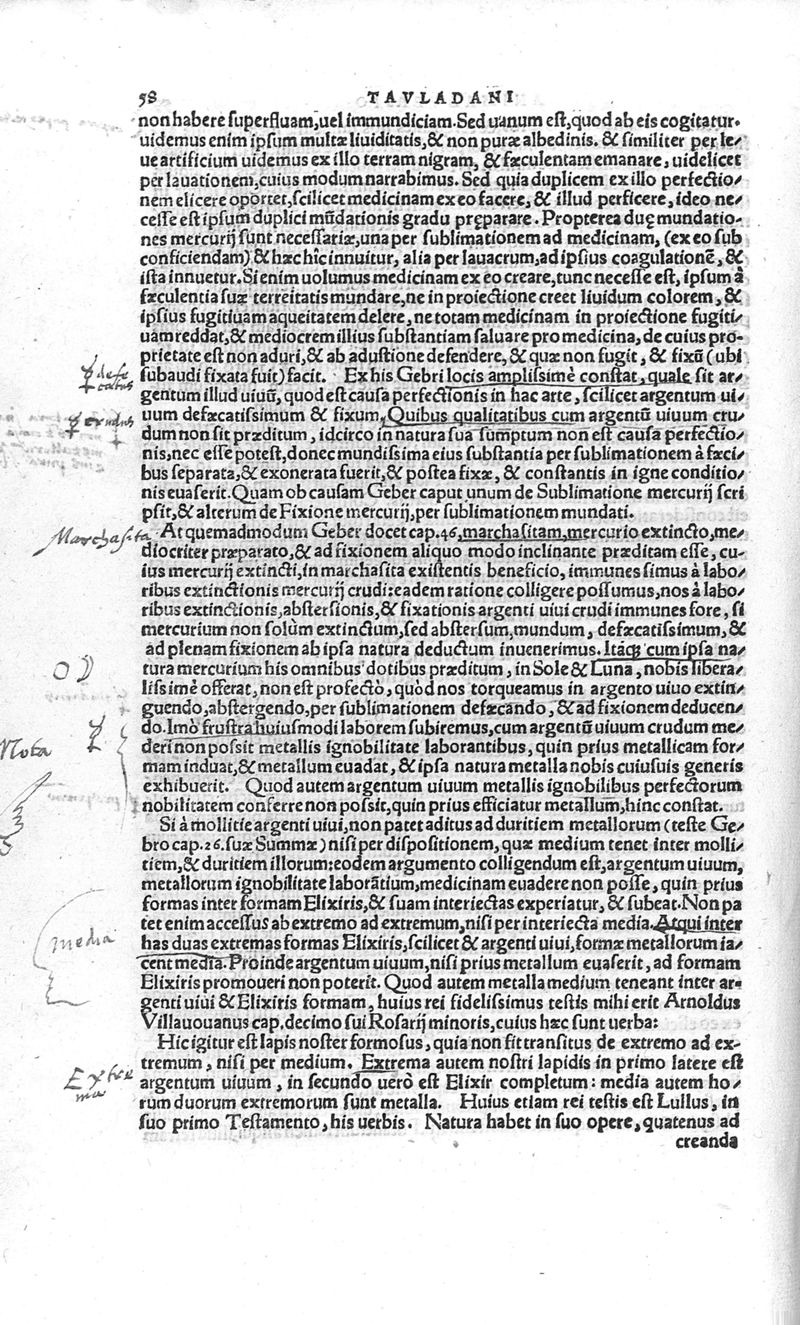 58 TAVLADANI
non habere superfluam,uel immundiciam.Sed uanum est,quod ab eis cogitatur.
uidemus enim ipsum multæ liuiditatis,& non puræ albedinis. & similiter per le/
ue artificium uidemus ex illo terram nigram, & fæculentam emanare, uidelicet
per lauationem,cuius modum narrabimus. Sed quia duplicem ex illo perfectio/
nem elicere oportet,scilicet medicinam ex eo facere, & illud perficere, ideo ne/
cesse est ipsum duplici mūdationis gradu pręparare. Propterea duę mundatio/
nes mercurij sunt necessariæ,una per sublimationem ad medicinam, (ex eo sub
conficiendam) & hæc hîc innuitur, alia per lauacrum,ad ipsius coagulationē, &
ista innuetur. Si enim uolumus medicinam ex eo creare,tunc necesse est, ipsum à
fæculentia suæ terreitatis mundare,ne in proiectione creet liuidum colorem, &
ipsius fugitiuam aqueitatem delere, ne totam medicinam in proiectione fugiti/
uam reddat,& mediocrem illius substantiam saluare pro medicina, de cuius pro-
prietate est non aduri,& ab adustione defendere,& quæ non fugit, & fixū (ubi
☿ defe
catus
subaudi fixata fuit) facit. Ex his Gebri locis amplissimè constat, quale sit ar/
gentum illud uiuū, quod est causa perfectionis in hac arte, scilicet argentum ui/
☿ crudus
uum defæcatissimum & fixum, Quibus qualitatibus cum argentū uiuum cru/
dum non sit præditum, idcirco in natura sua sumptum non est causa perfectio/
nis,nec esse potest,donec mundissima eius substantia per sublimationem à fæci/
bus separata,& exonerata fuerit,& postea fixæ, & constantis in igne conditio/
nis euaserit. Quam ob causam Geber caput unum de Sublimatione mercurij scri
psit,& alterum de Fixione mercurij,per sublimationem mundati.
Marchasita
At quemadmodum Geber docet cap.46,marchasitam,mercurio extincto,me/
diocriter præparato,& ad fixionem aliquo modo inclinante præditam esse, cu/
ius mercurij extincti,in marchasita existentis beneficio, immunes simus à labo/
ribus extinctionis mercurij crudi:eadem ratione colligere possumus,nos à labo/
ribus extinctionis,abstersionis,& fixationis argenti uiui crudi immunes fore, si
mercurium non solùm extinctum,sed abstersum,mundum, defæcatissimum,&
ad plenam fixionem ab ipsa natura deductum inuenerimus. Itáq; cum ipsa na/
☉☽
tura mercurium his omnibus dotibus præditum, in Sole & Luna, nobis libera/
lissimè offerat, non est profectò, quòd nos torqueamus in argento uiuo extin/
guendo,abstergendo,per sublimationem defæcando, & ad fixionem deducen/
☿
do. Imò frustra huiusmodi laborem subiremus,cum argentū uiuum crudum me/
Nota
deri non possit metallis ignobilitate laborantibus, quin prius metallicam for/
mam induat,& metallum euadat, & ipsa natura metalla nobis cuiusuis generis
exhibuerit. Quod autem argentum uiuum metallis ignobilibus perfectorum
nobilitatem conferre non possit,quin prius efficiatur metallum,hinc constat.
Si à mollitie argenti uiui,non patet aditus ad duritiem metallorum (teste Ge/
bro cap.26.suæ Summæ) nisi per dispositionem, quæ medium tenet inter molli/
tiem,& duritiem illorum:eodem argumento colligendum est,argentum uiuum,
metallorum ignobilitate laborātium,medicinam euadere non posse, quin prius
formas inter formam Elixiris,& suam interiectas experiatur, & subeat. Non pa
tet enim accessus ab extremo ad extremum,nisi per interiecta media.Atqui inter
media
has duas extremas formas Elixiris,scilicet & argenti uiui,formæ metallorum ia/
cent media. Proinde argentum uiuum,nisi prius metallum euaserit, ad formam
Elixiris promoueri non poterit. Quod autem metalla medium teneant inter ar-
genti uiui & Elixiris formam, huius rei fidelissimus testis mihi erit Arnoldus
Villauouanus cap.decimo sui Rosarij minoris,cuius hæc sunt uerba:
Hic igitur est lapis noster formosus, quia non fit transitus de extremo ad ex-
tremum, nisi per medium. Extrema autem nostri lapidis in primo latere est
Extre
ma
argentum uiuum, in secundo uerò est Elixir completum: media autem ho/
rum duorum extremorum sunt metalla. Huius etiam rei testis est Lullus, in
suo primo Testamento, his uerbis. Natura habet in suo opere, quatenus ad
creanda